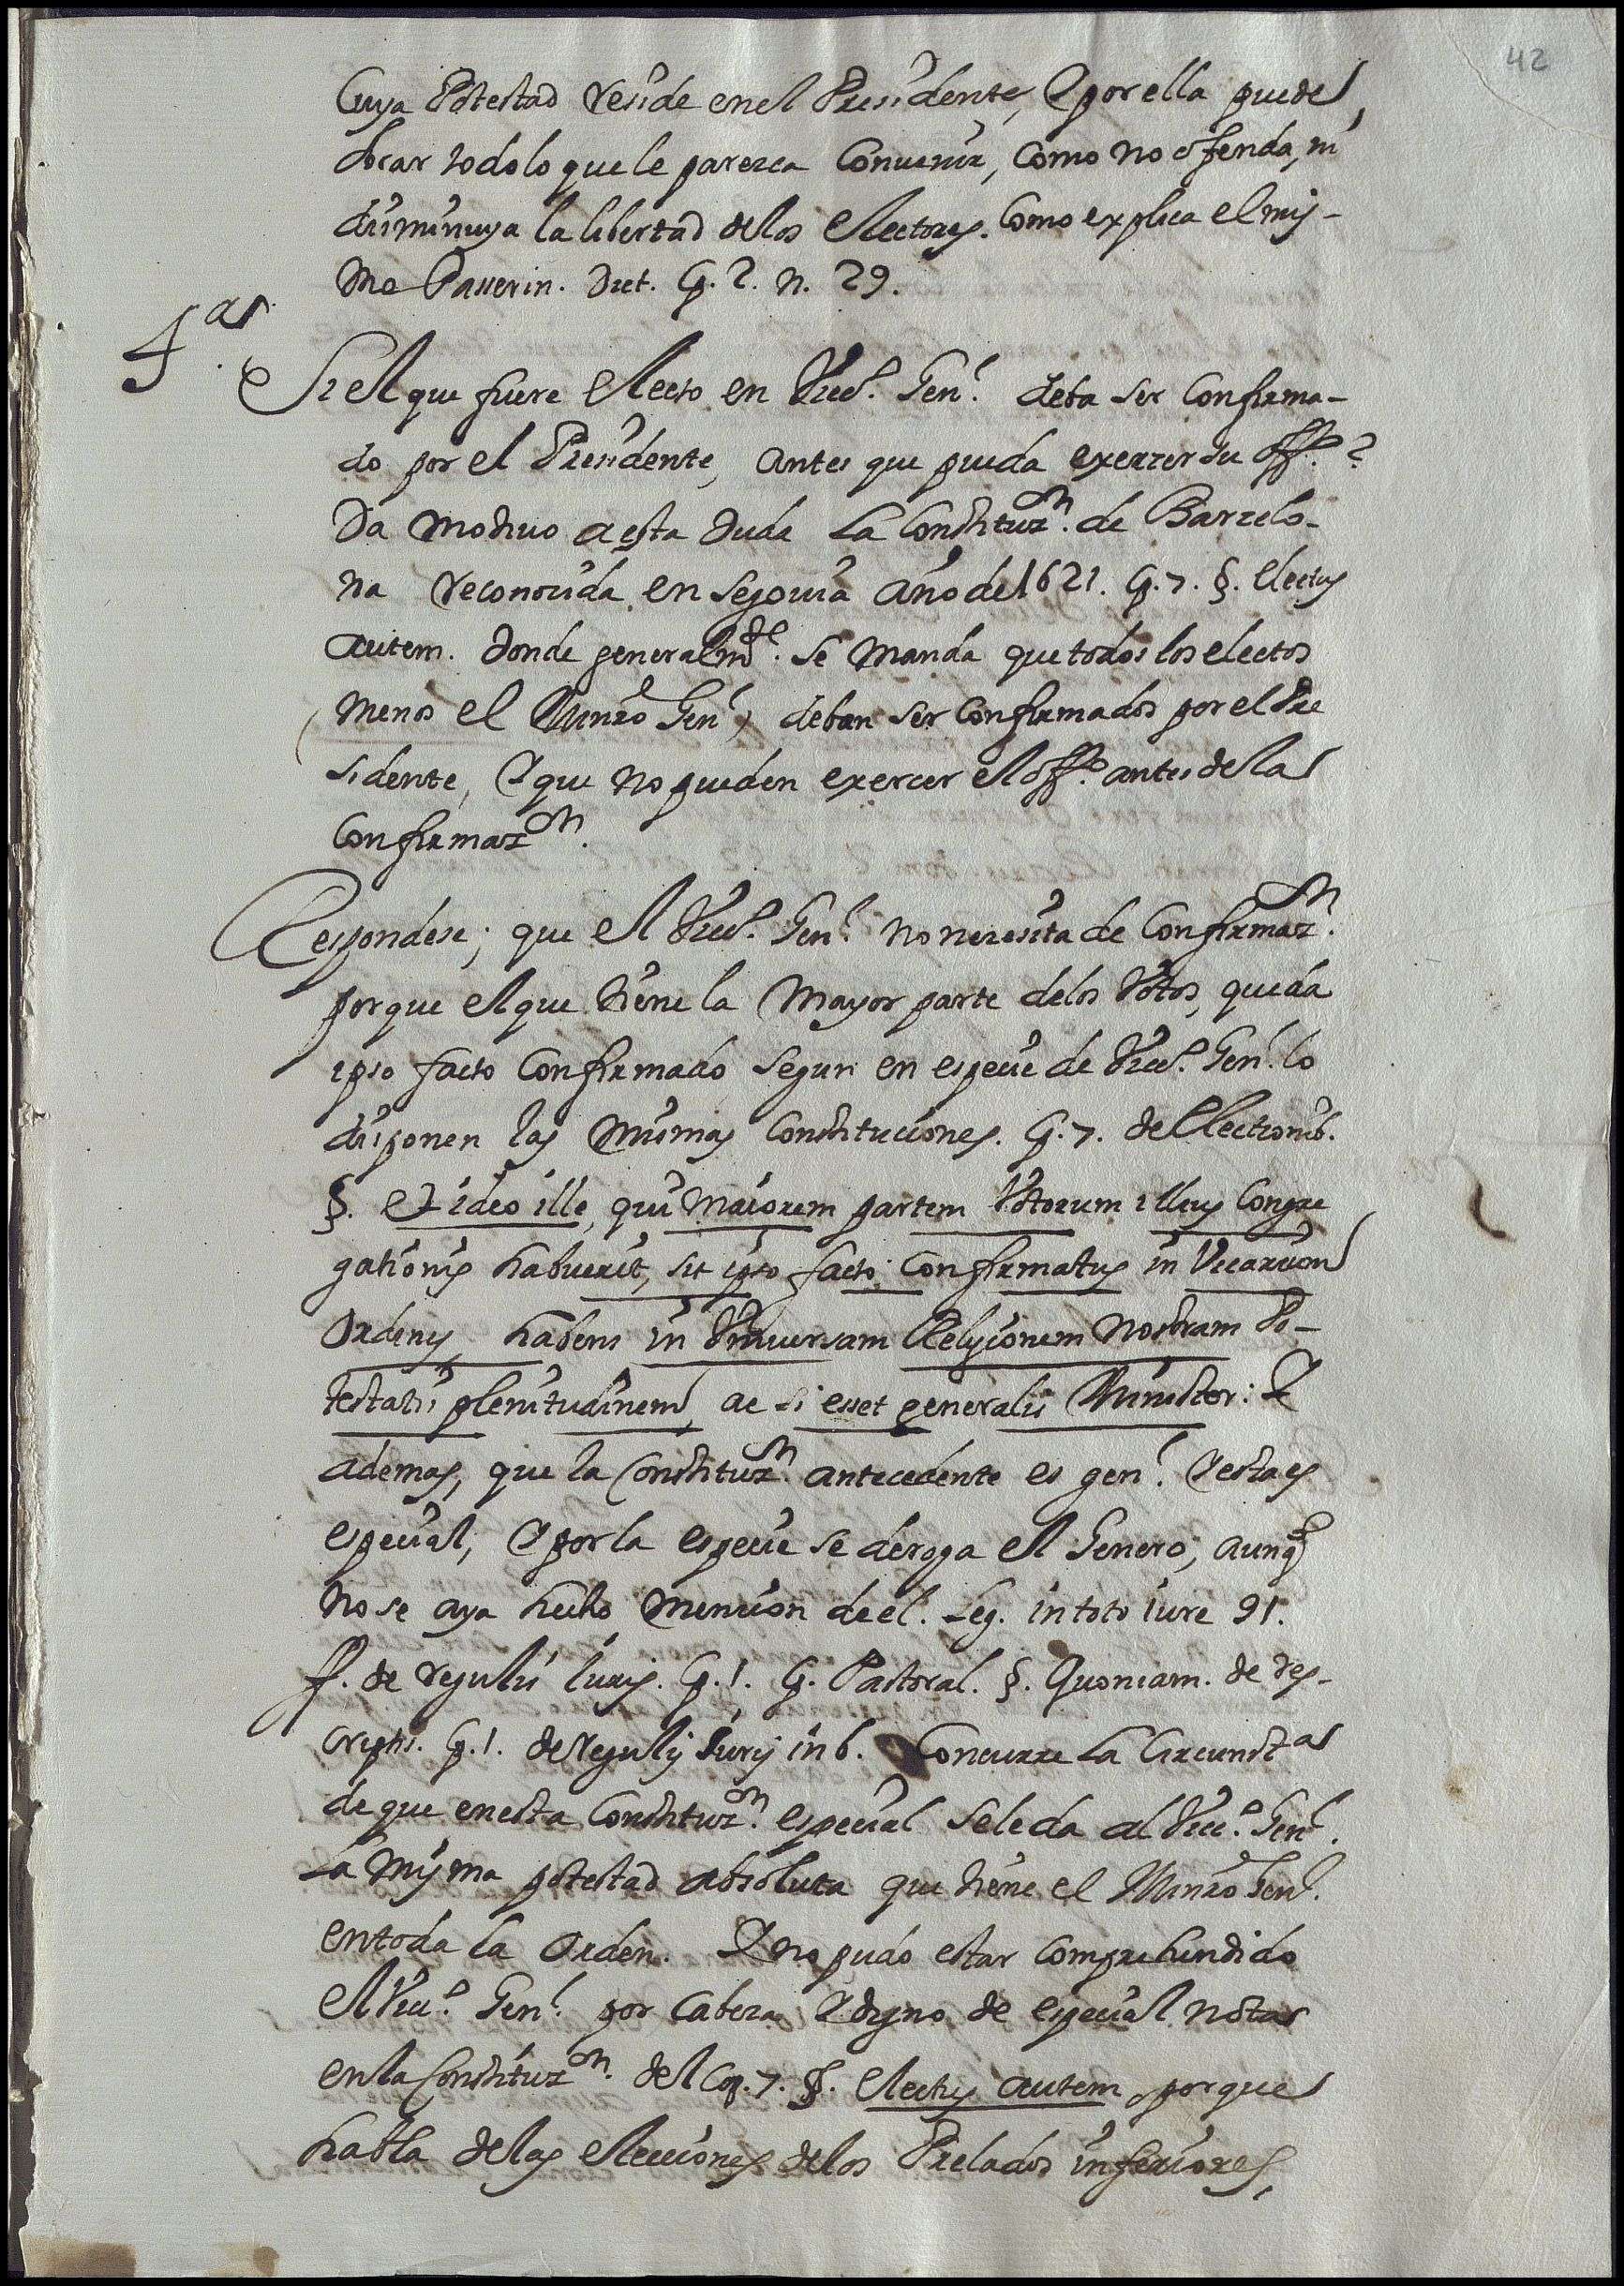 42
Cuya Potestad reside en el Presidente, Y por ella puede
obrar todo lo que le parezca Convenir, Como no ofenda, ni
disminuya la libertad de los electores. Como explica el mis-
mo Passerin. Dict. C. 2. n. 29.
4.ª
Si el que fuere electo en Vic.º Gen.l deba ser Confirma-
do por el Presidente, antes que pueda exerzer su off.º?
Da motivo a esta duda la Constituz.on de Barzelo-
na reconozida en Segovia año de 1621. C. 7. §. Electus
autem. donde generalm.te se manda que todos los electos
(menos el Minr̃o Gen.l) deban ser Confirmados por el Pre
sidente, Y que no pueden exercer el off.º antes de la
Confirmaz.on
Respondese; que el Vic.º Gen.l no nezesita de Confirmaz.on
porque el que tiene la Mayor parte de los Votos, queda
ipso facto Confirmado segun en especie de Vic.º Gen.l lo
disponen las mismas Constituciones. C. 7. de Electionib.
§. et ideo ille, qui maiorem partem Votorum illius Congre
gationis habuerit, sit ipso facto Confirmatus in Vicarium
Ordinis, habens in Universam Religionem nostram Po-
testatis plenitudinem, ac si esset generalis Minister: Y
ademas, que la Constituz.on antecedente es gen.l Y esta es
especial, Y por la especie se deroga el Genero, aunq̃
no se aya hecho mencion de el. Leg. in toto iure 91.
ff. de regulis iuris. C. 1. C. Pastoral. §. Quoniam. de res-
criptis. C. 1. de regulis iuris in 6. Concurre la Circunst.a
de que en esta Constituz.on especial se le da al Vic.º Gen.l
la misma potestad absoluta que tiene el Minr̃o Gen.l
en toda la Orden. Y no pudo estar Comprehendido
el Vic.º Gen.l por Cabeza Y digno de especial nota
en la Constituz.on del Cap. 7. §. electus autem, porque
habla de las elecciones de los Prelados inferiores,